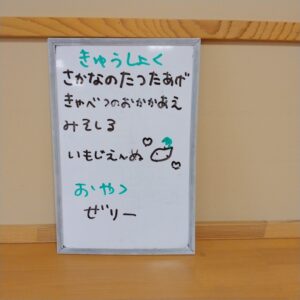 きゅうしょく
さかなのたつたあげ
きゃべつのおかかあえ
みそしる
いもじぇんぬ
おやつ
ぜりー